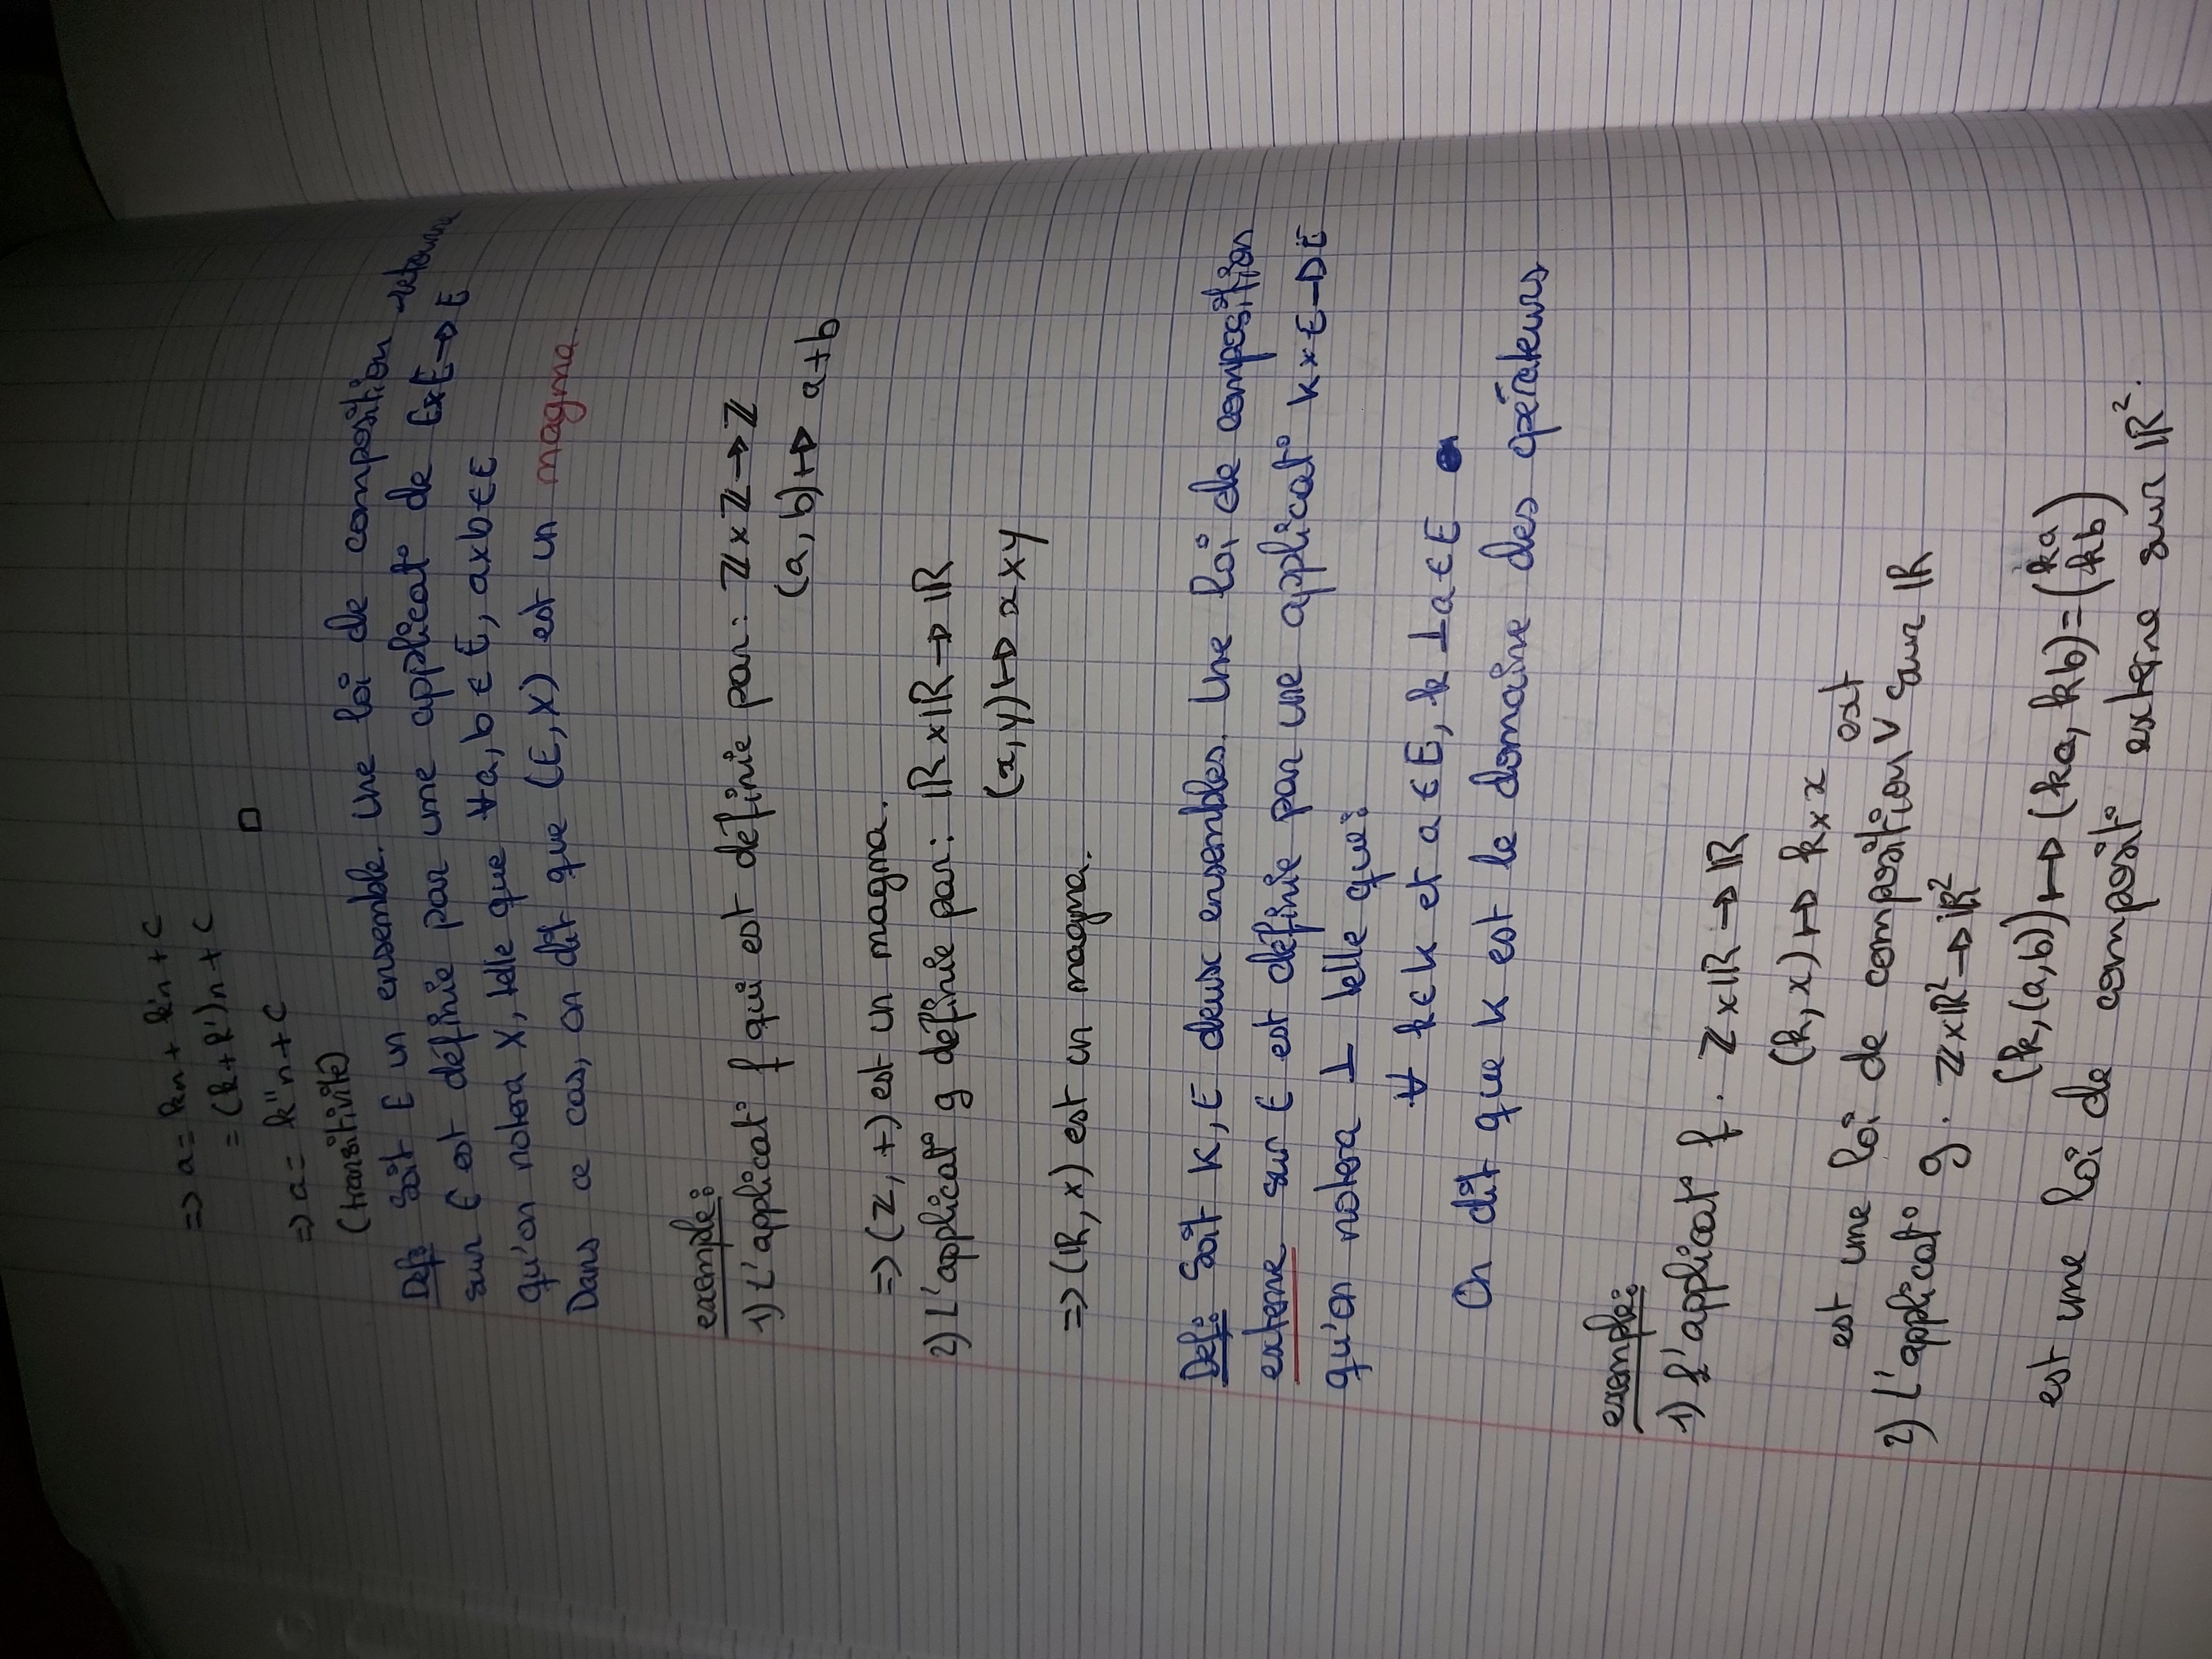 => a = kn + k'n + c
= (k+k')n + c
□
=> a = k''n + c
(transitivité)
Def: Soit E un ensemble. Une loi de composition
sur E est définie par une applicat° de ExE→E
qu'on notera X, telle que ∀a, b ∈ E, axb∈E
Dans ce cas, on dit que (E, X) est un magma.
exemple:
1) L'applicat° f qui est définie par: ℤ x ℤ → ℤ
(a, b) ↦ a+b
=> (ℤ, +) est un magma.
2) L'applicat° g définie par: ℝ x ℝ → ℝ
(x, y) ↦ x x y
=> (ℝ, x) est un magma.
Def: Soit K, E deux ensembles. Une loi de composition
externe sur E est définie par une applicat° K x E → E
qu'on notera ⊥ telle que:
∀ k∈K et a ∈ E, k ⊥ a ∈ E
On dit que K est le domaine des opérateurs
exemple:
1) L'applicat° f. ℤ x ℝ → ℝ
(k, x) ↦ k x x
est une loi de composition ext sur ℝ
2) L'applicat° g. ℤ x ℝ² → ℝ²
(k, (a, b)) ↦ (ka, kb) = (ka
kb)
est une loi de composit° externe sur ℝ².